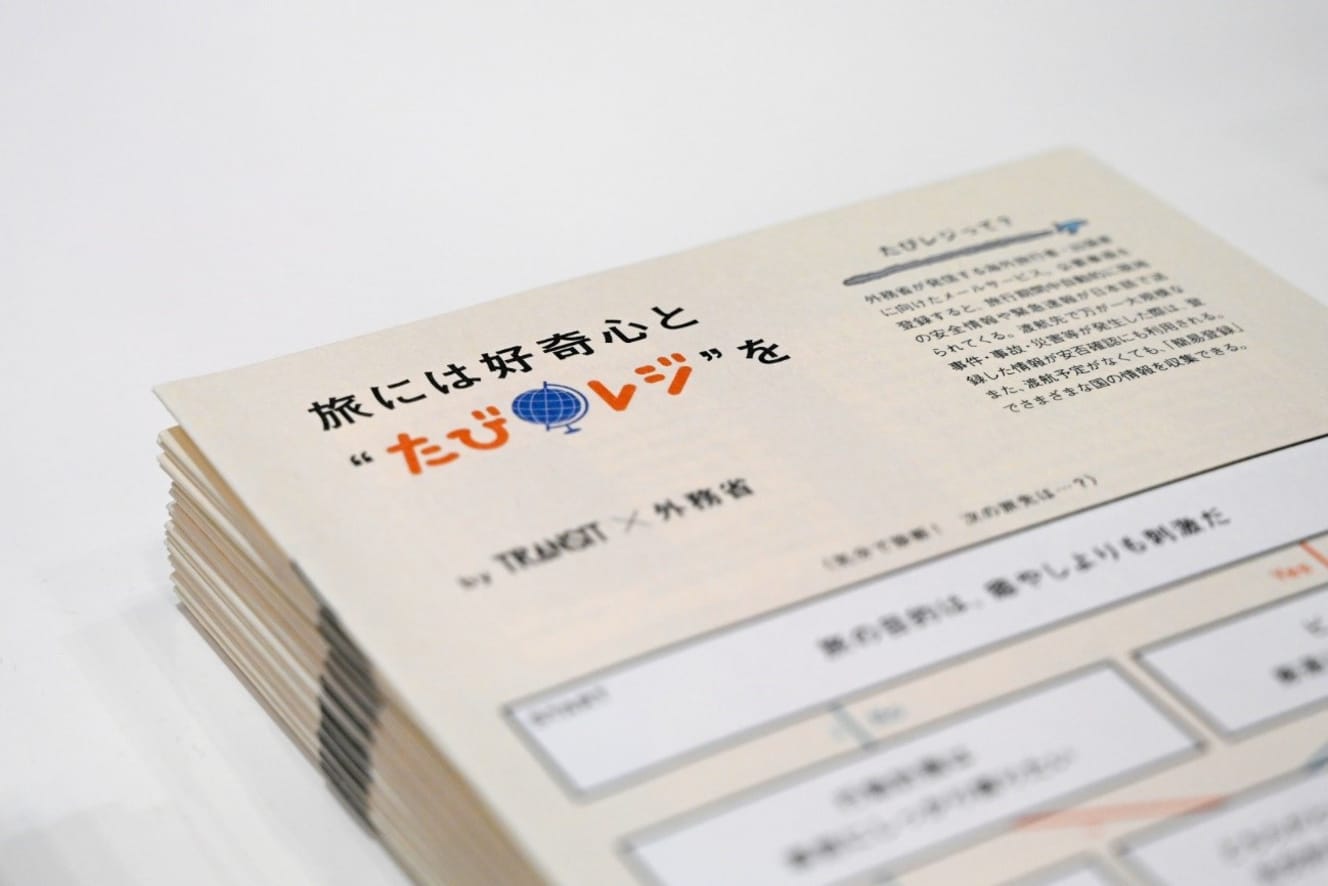 旅には好奇心と
“たびレジ”を
by TRANSIT × 外務省
たびレジって？
外務省が発信する海外旅行者・出張者
に向けたメールサービス。必要事項を
登録すると、旅行期間中自動的に現地
の安全情報や緊急速報が日本語で送
られてくる。渡航先で万が一大規模な
事件・事故・災害等が発生した際は、登
録した情報が安否確認にも利用される。
また、渡航予定がなくても、「簡易登録」
でさまざまな国の情報を収集できる。
(気分で診断！ 次の旅先は…？)
START
旅の目的は、癒やしよりも刺激だ
Yes
No